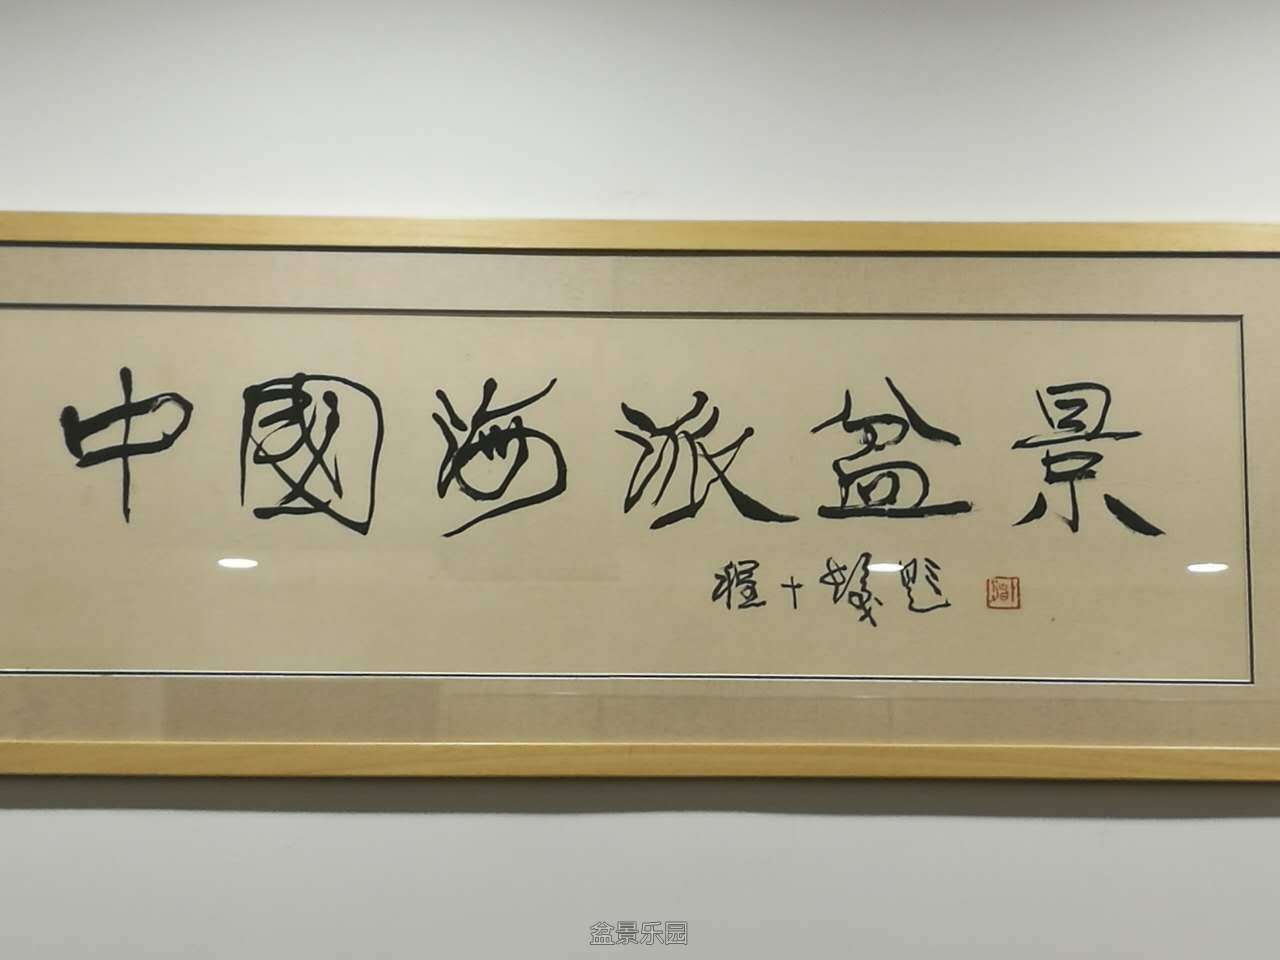 中國海派盆景
程十髮題
盆景乐园